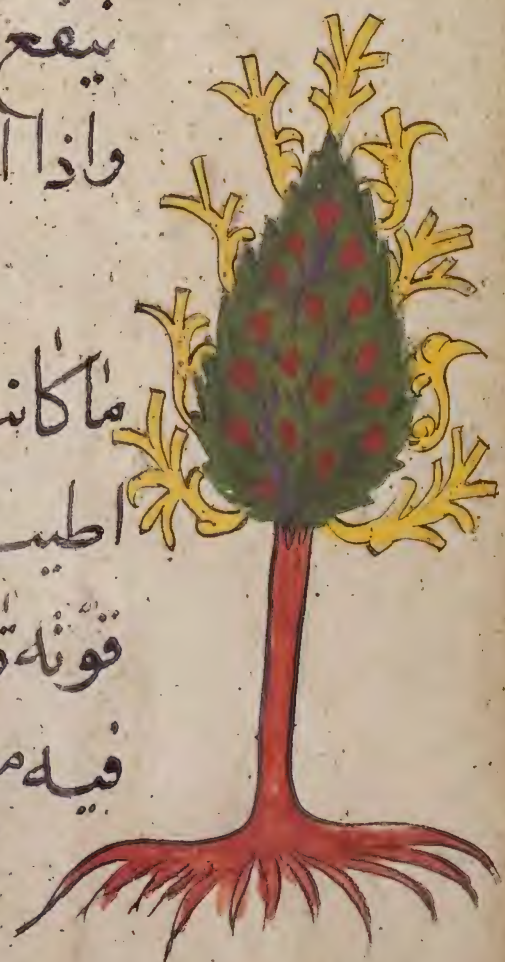 ينفع
واذا ا
ماكانت
اطيب
قوته
فيه